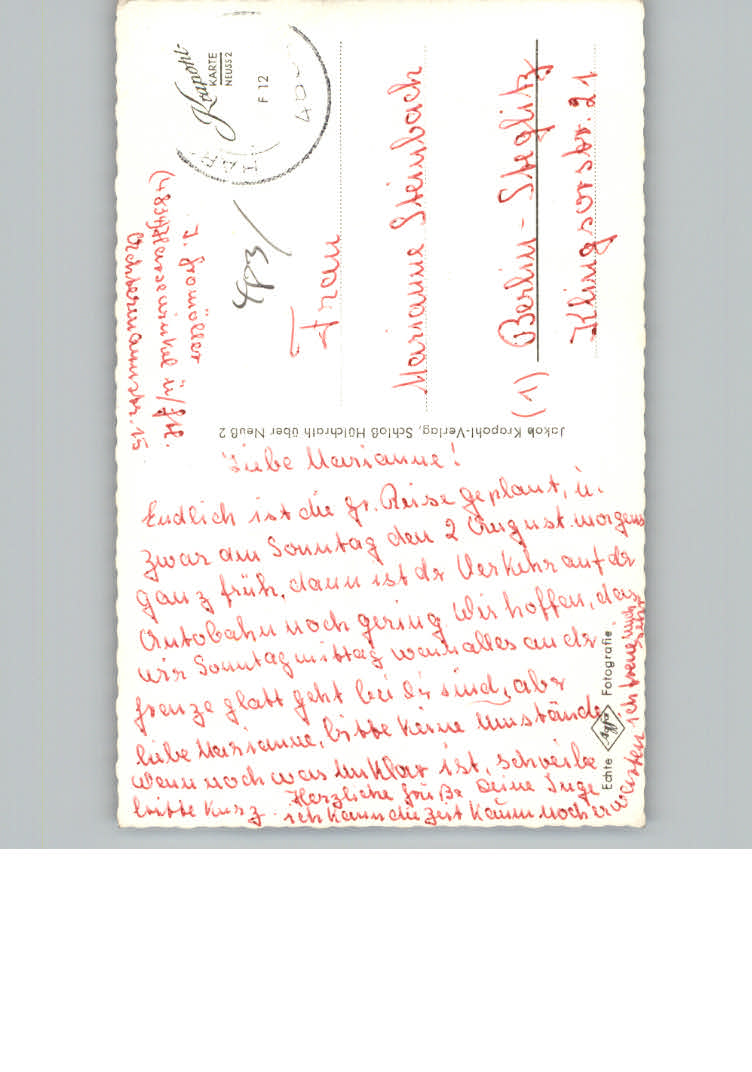 Liebe Marianne!
Endlich ist die gr. Reise geplant, u.
zwar am Sonntag den 2 August. morgens
ganz früh, dann ist dr Verkehr auf dr
Autobahn noch gering Wir hoffen, das
wir Sonntagmittag wenn alles an dr
Grenze glatt geht bei Dir sind, abr
liebe Marianne, bitte keine Umstände
Wenn noch was unklar ist, schreibe
bitte kurz. Herzliche Grüße Deine Inge
ich kann die Zeit kaum noch erwarten ich freue mich
sehr
J. Gromöller
Af/ü
15
483/
Frau
Marianne Steinbach
(1) Berlin-Steglitz
Klingsorstr. 21
Krapohl-
KARTE
NEUSS 2
F 12
Jakob Krapohl-Verlag, Schloß Hülchrath über Neuß 2
Echte Agfa Fotografie